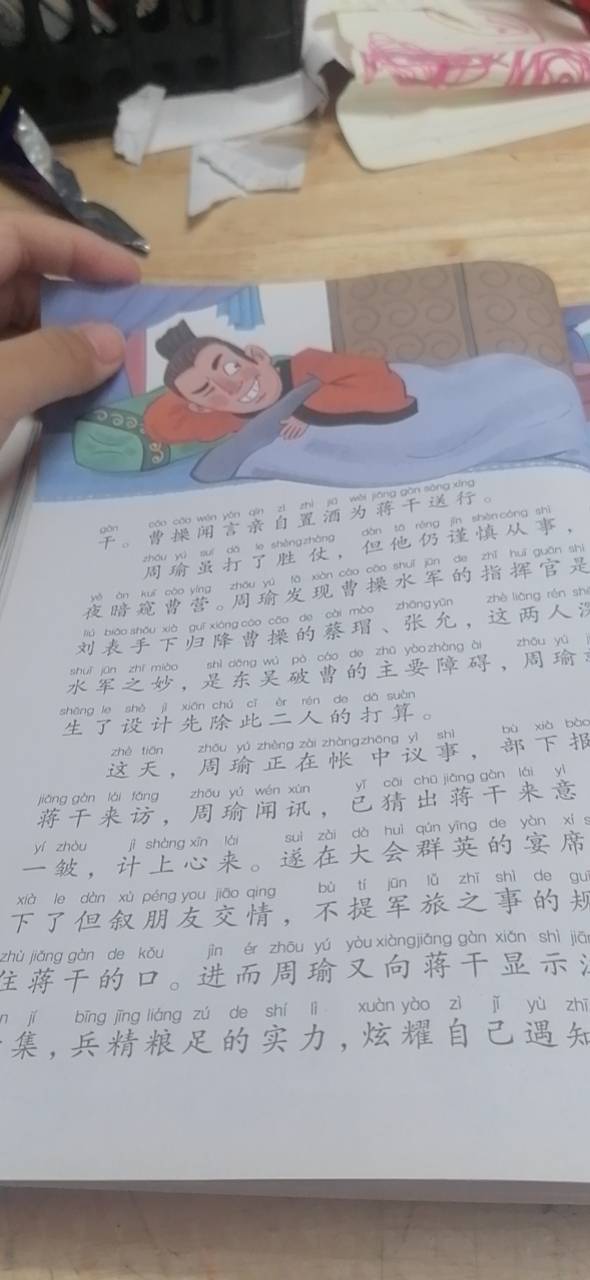 gàn cáo cāo wén yán qīn zì zhì jiǔ wèi jiǎng gàn sòng xíng
干。曹操闻言亲自置酒为蒋干送行。
zhōu yú suī dǎ le shèng zhàng dàn tā réng jǐn shèn cóng shì
周瑜虽打了胜仗，但他仍谨慎从事，
yè àn kuī cáo yíng zhōu yú fā xiàn cáo cāo shuǐ jūn de zhǐ huī guān shì
夜暗窥曹营。周瑜发现曹操水军的指挥官是
liú biǎo shǒu xià guī xiáng cáo cāo de cài mào zhāng yǔn zhè liǎng rén
刘表手下归降曹操的蔡瑁、张允，这两人深
shuǐ jūn zhī miào shì dōng wú pò cáo de zhǔ yào zhàng ài zhōu yú
水军之妙，是东吴破曹的主要障碍，周瑜
shēng le shè jì xiān chú cǐ èr rén de dǎ suàn
生了设计先除此二人的打算。
zhè tiān zhōu yú zhèng zài zhàng zhōng yì shì bù xià bào
这天，周瑜正在帐中议事，部下报
jiǎng gàn lái fǎng zhōu yú wén xùn yǐ cāi chū jiǎng gàn lái yì
蒋干来访，周瑜闻讯，已猜出蒋干来意
yí zhòu jì shàng xīn lái suì zài dà huì qún yīng de yàn xí
一皱，计上心来。遂在大会群英的宴席
xià le dàn xù péng you jiāo qíng bù tí jūn lǚ zhī shì de guī
下了但叙朋友交情，不提军旅之事的规
zhù jiǎng gàn de kǒu jìn ér zhōu yú yòu xiàng jiǎng gàn xiǎn shì
住蒋干的口。进而周瑜又向蒋干显示
jí bīng jīng liáng zú de shí lì xuàn yào zì jǐ yù zhī
集，兵精粮足的实力，炫耀自己遇知